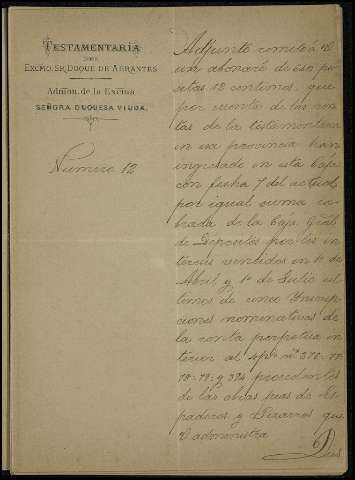 TESTAMENTARÍA
DEL
EXCMO. SR. DUQUE DE ABRANTES
Admon. de la Excma.
SEÑORA DUQUESA VIUDA.
Numero 12
Adjunto remito á V.
un abonaré de 640 pe
setas 12 centimos, que
por cuenta de las ren
tas de la testamentaria
en esa provincia han
ingresado en esta Caja
con fecha 7 del actual
por igual suma co
brada de la Caja Gral
de Depositos por los in
tereses vencidos en 1º de
Abril y 1º de Julio ul
timos de cinco Inscrip
ciones nominativas de
la renta perpetua in
terior al 4 p%
y 394 procedentes
de las obras pias de Es
paderos y Pizarros que
V administra
Dios